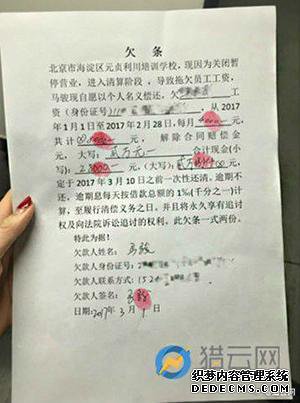 欠 条
北京市海淀区元贞利川培训学校,现因为关闭暂停
营业,进入清算阶段、导致拖欠员工工资,
马骏现自愿以个人名义偿还,欠
工资(身份证号)110 ,从 2017
年1月1日至2017年2月28日,每月4000元,
共计8000元, 解除合同赔偿金
元,大写:贰万元 合计现金(小
写):28000元,(大写)贰万捌仟元,
定于2017年3月10日之前一次性还清。逾期不
还,逾期息每天按借款总额的1‰(千分之一)计
算,至履行清偿义务之日。并且将永久享有追讨
权及向法院诉讼追讨的权利。此欠条一式两份。
特此为据!
欠款人姓名:马骏
欠款人身份证号:2
欠款人联系方式:152
欠款人签名:马骏
日期:2017年3月1日
猎云网
内容管理系统